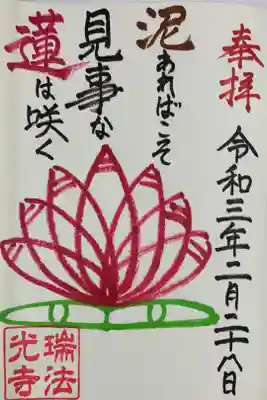 奉拝
令和三年二月二十八日
泥あればこそ
見事な
蓮は咲く
瑞法
光寺